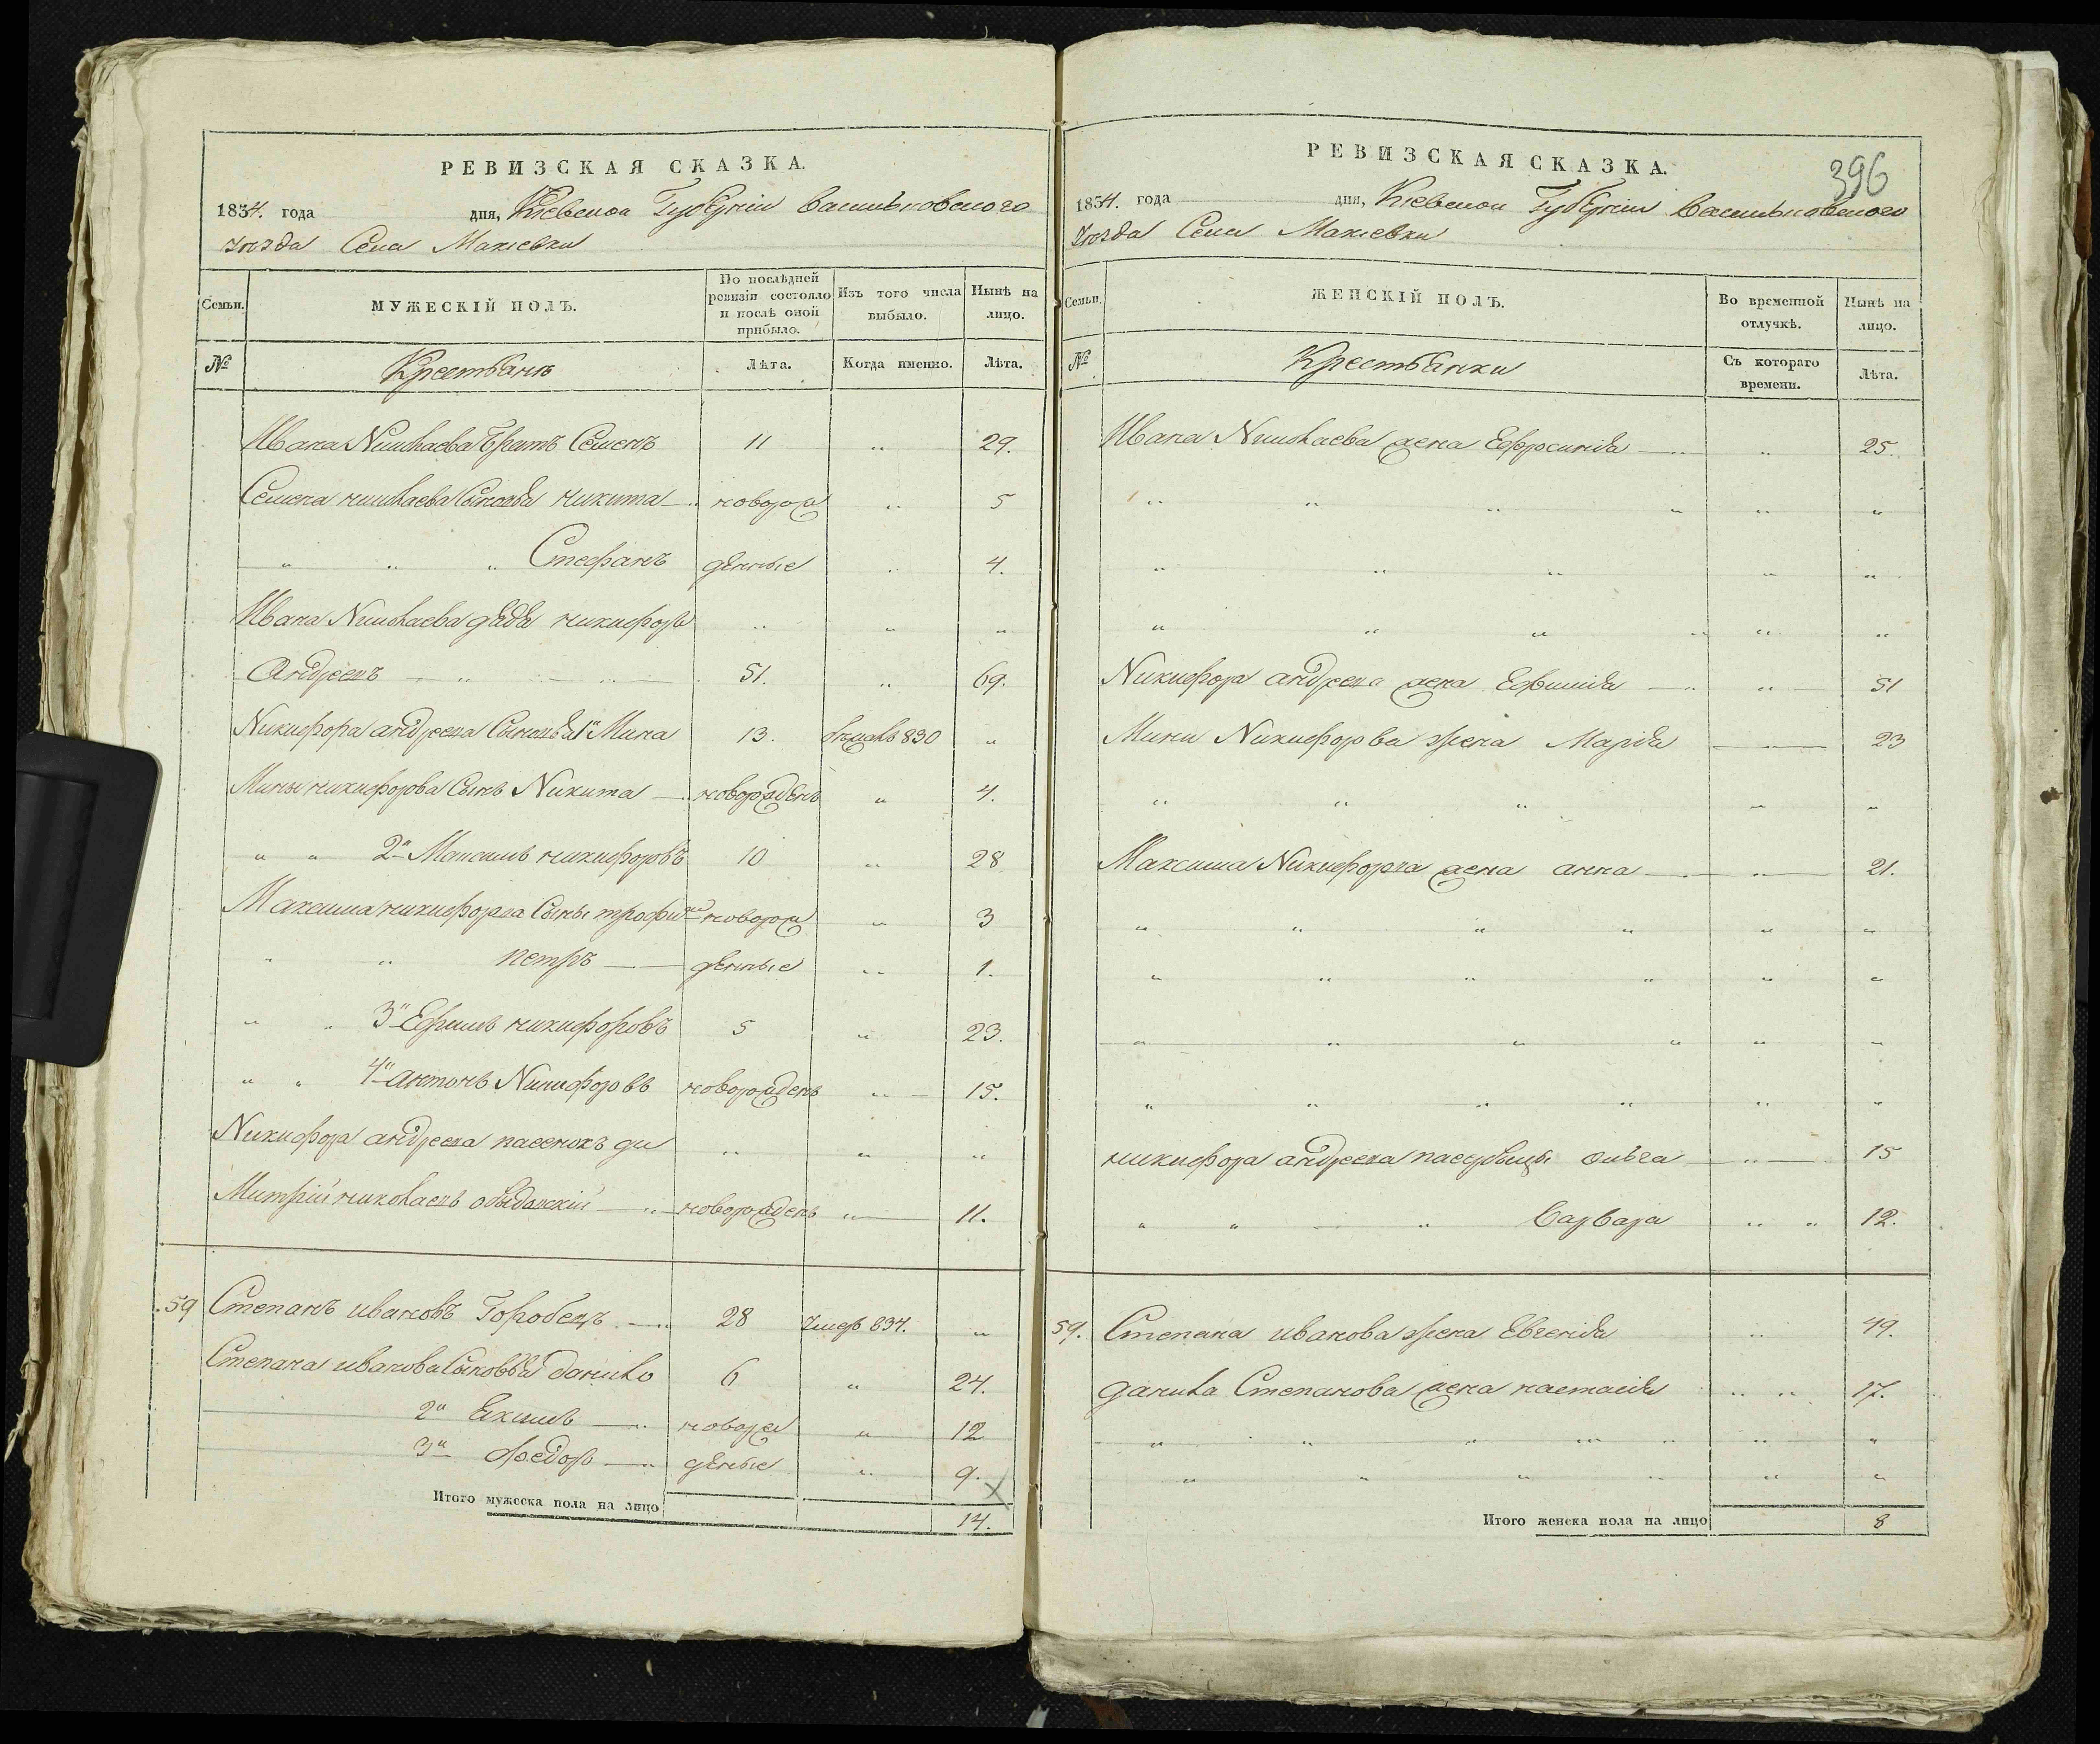 РЕВИЗСКАЯ СКАЗКА.
1834. года дня, Кіевской Губерніи Васильковского
уезда Села Макіевки
Семьи. МУЖЕСКІЙ ПОЛЪ. По послѣдней ревизіи состояло и послѣ оной прибыло. Изъ того числа выбыло. Нынѣ на лицо.
№ Крестьянъ Лѣта. Когда именно. Лѣта.
Ивана Николаева братъ Семенъ 11 „ 29.
Семена николаева Сыновья никита новорож „ 5
„ „ „ Стефанъ денные „ 4.
Ивана Николаева дядя никифоръ „ „ „
Андреевъ „ 51. „ 69.
Никифора андреева Сыновья 1й Мина 13. 830 „
Мины никифорова Сынъ Никита новорожденъ „ 4.
„ „ 2й Максимъ никифоровъ 10 „ 28
Максима никифорова Сыны трофимъ новорож „ 3
„ „ петръ денные „ 1.
„ „ 3й Ефимъ никифоровъ 5 „ 23.
„ „ 4й антонъ Никифоровъ новорожденъ „ 15.
Никифора андреева пасенокъ ди „ „ „
Митрій николаевъ новорожденъ „ 11.
59 Степанъ ивановъ Горобецъ 28 умеръ 834. „
Степана иванова Сыновья данило 6 „ 24.
2й Екимъ новорож „ 12
3й Федоръ денные „ 9.
Итого мужеска пола на лицо 14.
396
РЕВИЗСКАЯ СКАЗКА.
1834. года дня, Кіевской Губерніи Васильковского
уезда Села Макіевки
Семьи. ЖЕНСКІЙ ПОЛЪ. Во временной отлучкѣ. Нынѣ на лицо.
№ Крестьянки Съ котораго времени. Лѣта.
Ивана Николаева жена Ефросинія „ 25.
„ „ „ „ „ „
„ „ „ „ „
„ „ „ „ „ „
Никифора андреева жена Ефимія „ 51
Мины Никифорова жена Марія 23
„ „ „ „ „
Максима Никифорова жена анна „ 21.
„ „ „ „ „ „
„ „ „ „ „ „
„ „ „ „ „ „
„ „ „ „ „ „
никифора андреева пасербицы ольга „ 15
„ „ „ Варвара „ „ 12.
59. Степана иванова жена Евгенія „ 49.
данила Степанова жена настасія „ „ 17.
„ „ „ „ „ „ „
„ „ „ „ „ „
Итого женска пола на лицо 8